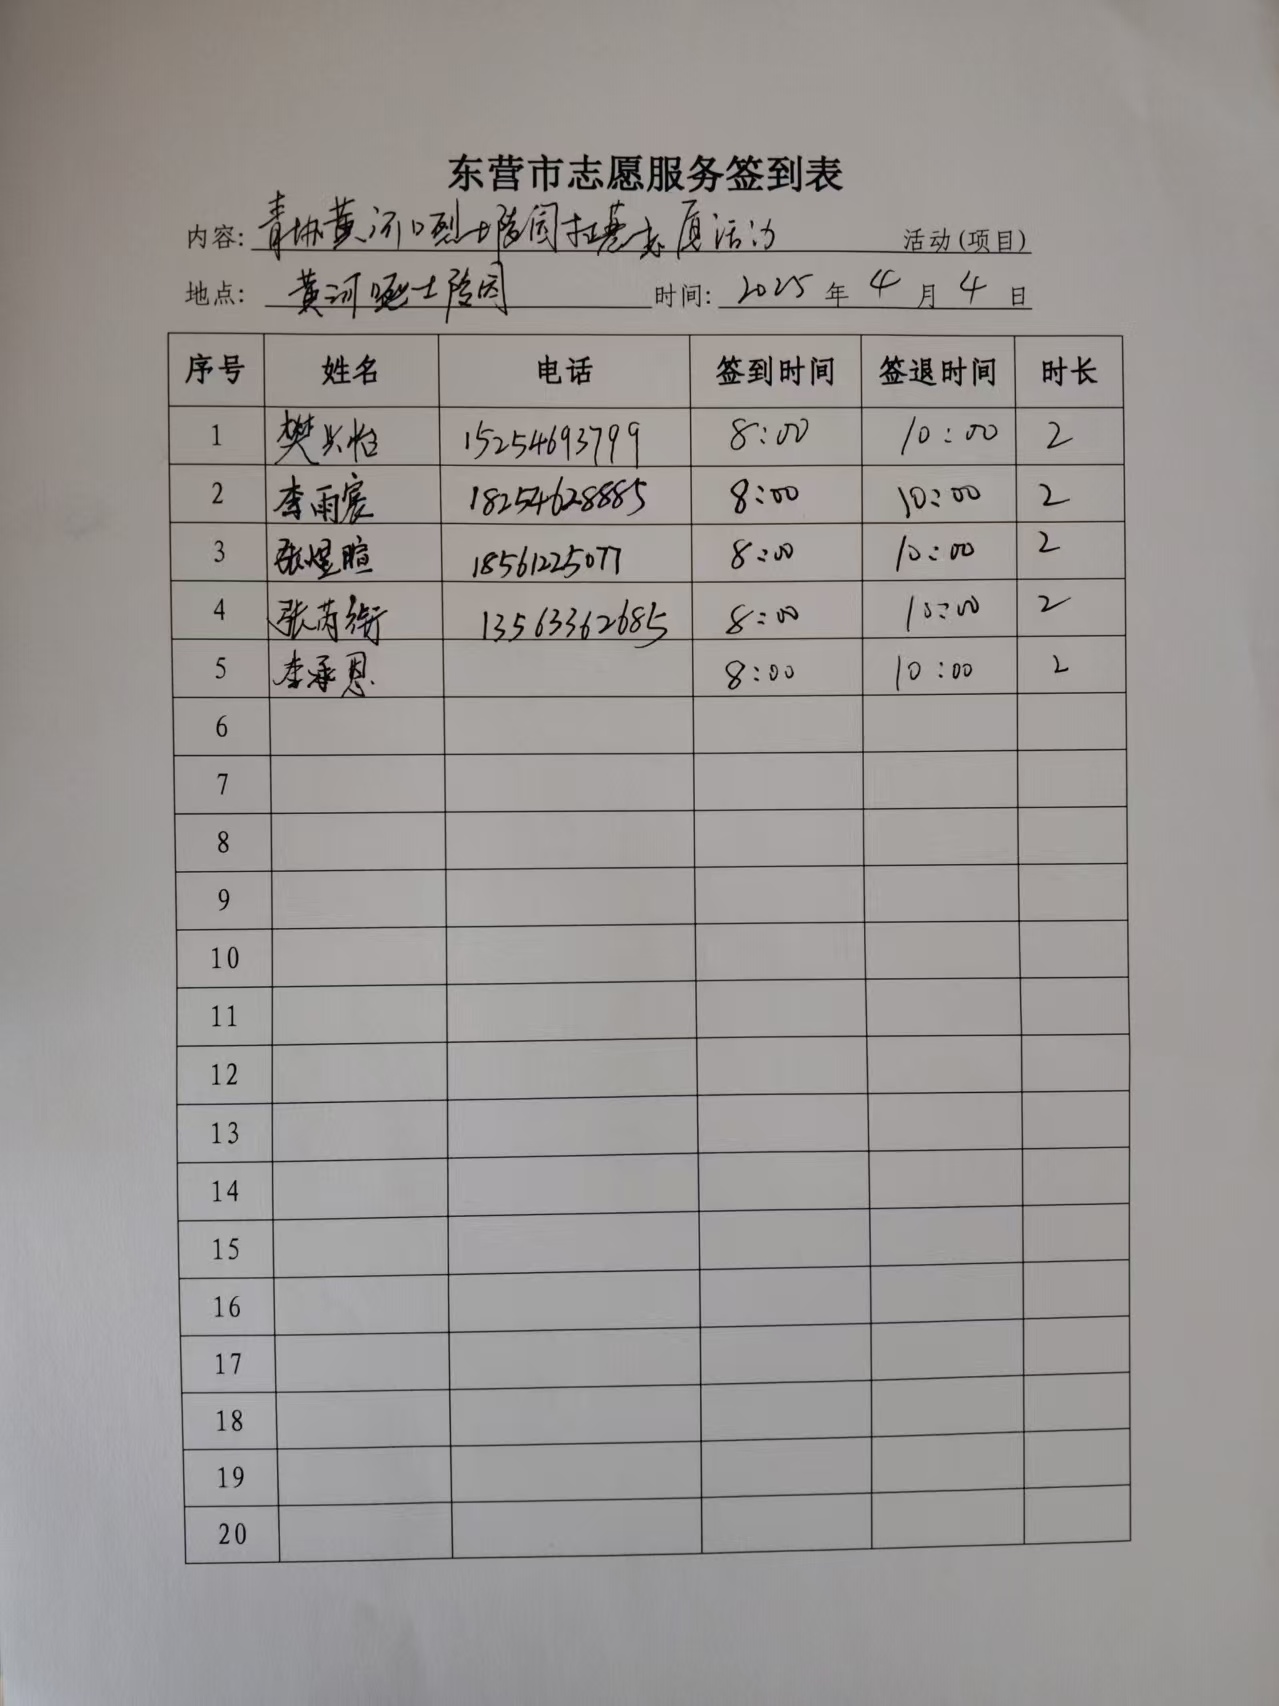 东营市志愿服务签到表
内容: 青协黄河口烈士陵园扫墓志愿活动 活动(项目)
地点: 黄河口烈士陵园 时间: 2025 年 4 月 4 日
序号 姓名 电话 签到时间 签退时间 时长
1 樊怡 15254693799 8:00 10:00 2
2 李雨宸 18254628885 8:00 10:00 2
3 张煜暄 18561225077 8:00 10:00 2
4 张芮 13563362685 8:00 10:00 2
5 李承恩 8:00 10:00 2
6
7
8
9
10
11
12
13
14
15
16
17
18
19
20